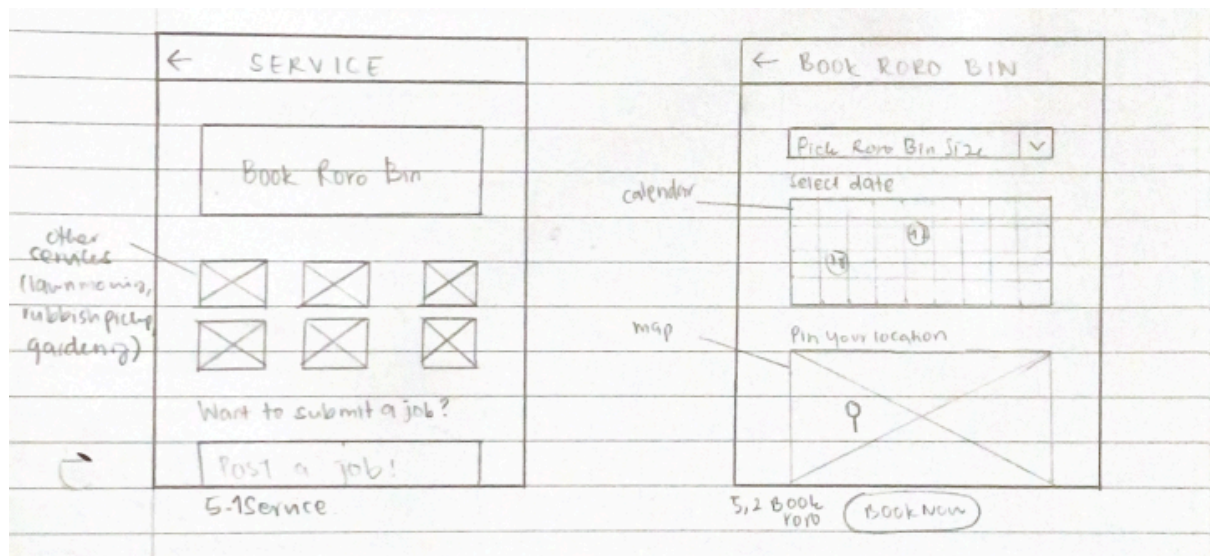 ← SERVICE
Book Roro Bin
other
services
(lawnmowing,
rubbish pickup,
gardening)
Want to submit a job?
Post a job!
5.1 Service
← BOOK RORO BIN
Pick Roro Bin Size
Select date
calendar
map
Pin your location
5.2 Book
roro
Book Now